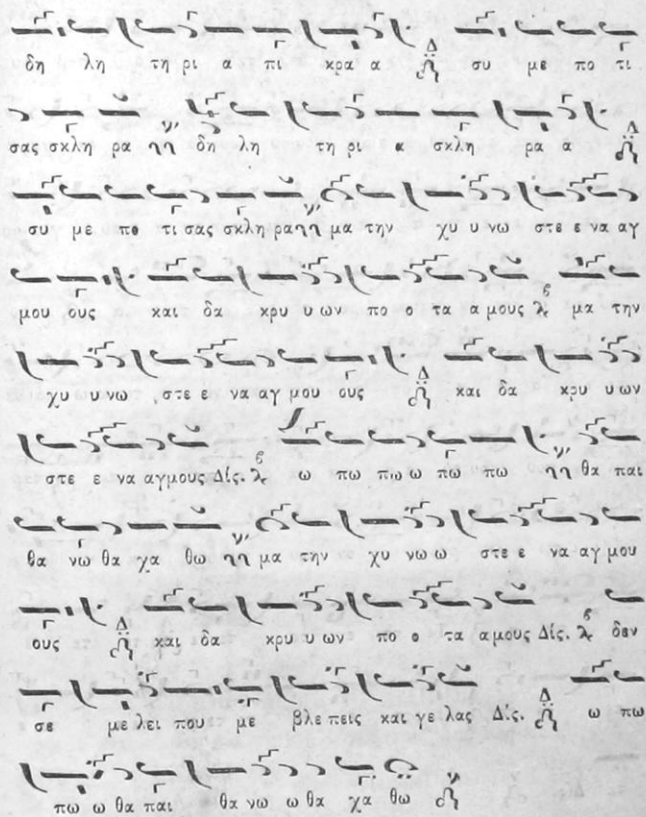 δη λη τη ρι α πι κρα α Δ συ με πο τι
σας σκλη ρα δη λη τη ρι α σκλη ρα α Δ
συ με πο τι σας σκλη ρα μα την χυ υ νω στε ε να αγ
μου ους και δα κρυ υ ων πο ο τα α μους μα την
χυ υ νω στε ε να αγ μου ους Δ και δα κρυ υ ων
στε ε να αγμους Δίς. ω πω πω ω πω πω θα παι
θα νω θα χα θω μα την χυ νω ω στε ε να αγ μου
ους Δ και δα κρυ υ ων πο ο τα α μους Δίς. δεν
σε με λει που με βλε πεις και γε λας Δίς. Δ ω πω
πω ω θα παι θα νω ω θα χα θω